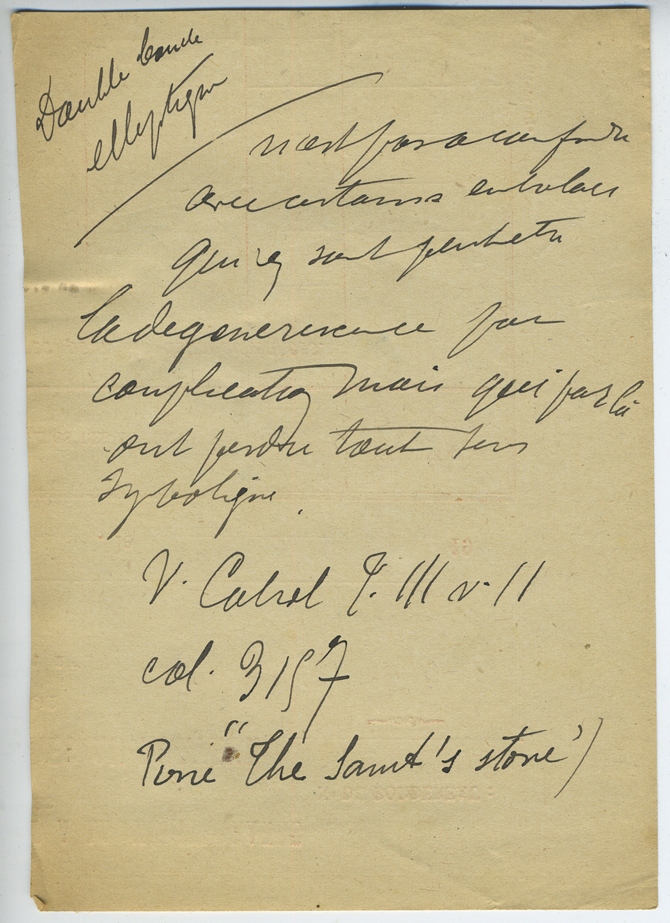 Double boucle
elliptique
n'est pas a confondre
avec certains entrelacs
qui en sont peut etre
la degenerescence par
complication mais qui par là
ont perdu tout sens
symbolique.
V. Cabrol T. III v. II
col. 3157
"The Saint's stone")